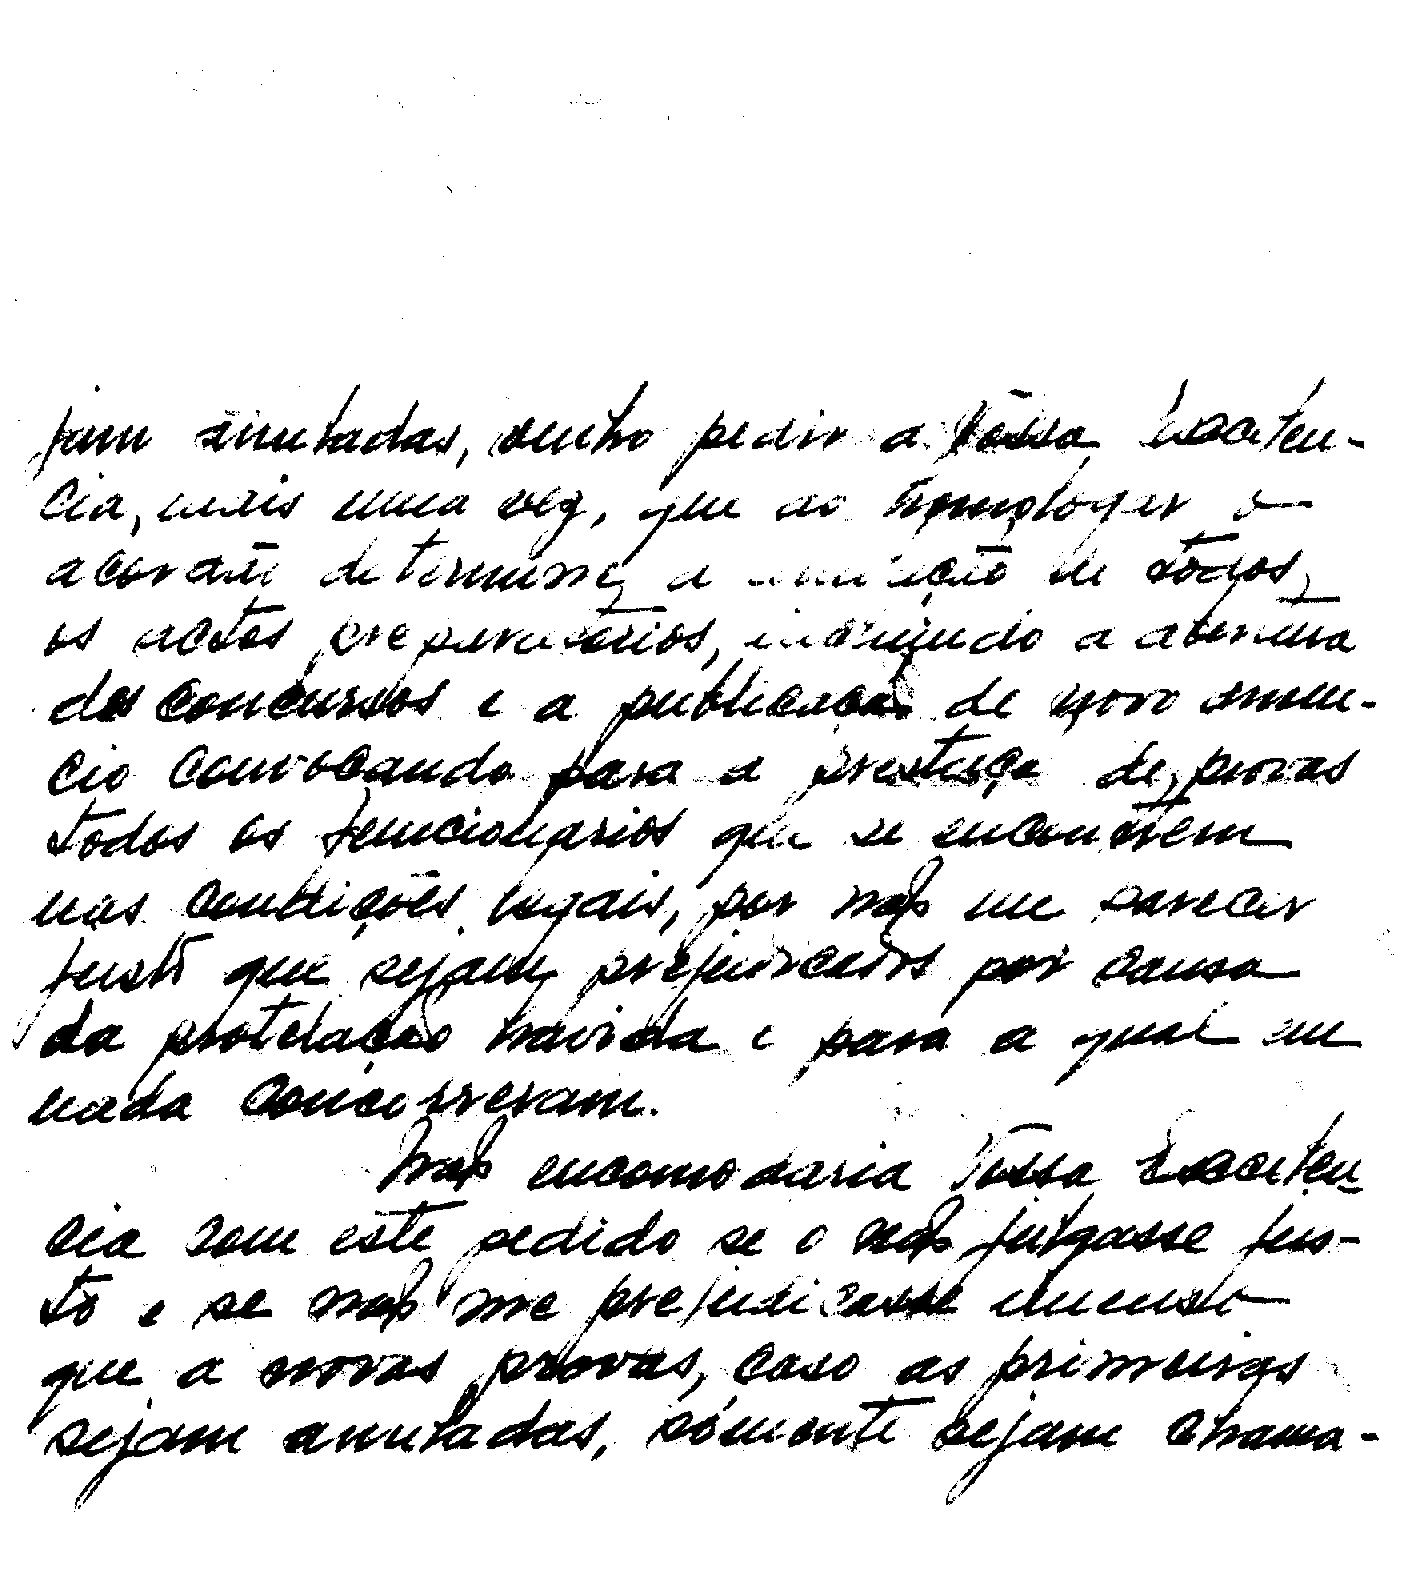 jam anuladas, venho pedir a Vossa Excelen-
cia, mais uma vez, que ao homologar o
acordão determine a anulação de todos
os actos preparatórios, incluindo a abertura
dos concursos e a publicação de novo anun-
cio convocando para a prestação de provas
todos os funcionarios que se encontrem
nas condições legais, por não me parecer
justo que sejam prejudicados por causa
da protelação havida e para a qual em
nada concorreram.
Não encomodaria Vossa Excelen-
cia com este pedido se o não julgasse jus-
to e se não me prejudicasse imenso
que a novas provas, caso as primeiras
sejam anuladas, sómente sejam chama-